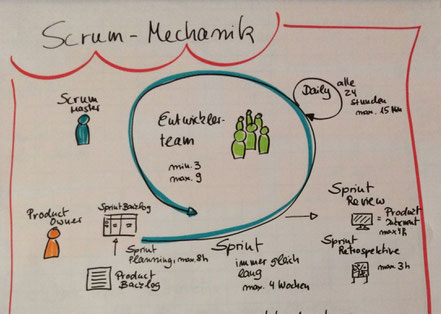 Scrum-Mechanik
Scrum
Master
Entwickler-
team
min. 3
max. 9
Daily
alle
24
Stunden
max. 15 Min
Product
Owner
Sprint Backlog
Sprint
Planning, max. 8h
Product
Backlog
Sprint
immer gleich
lang
max. 4 Wochen
Sprint
Review
= Product
Inkrement
max 4h
Sprint
Retrospektive
max. 3h